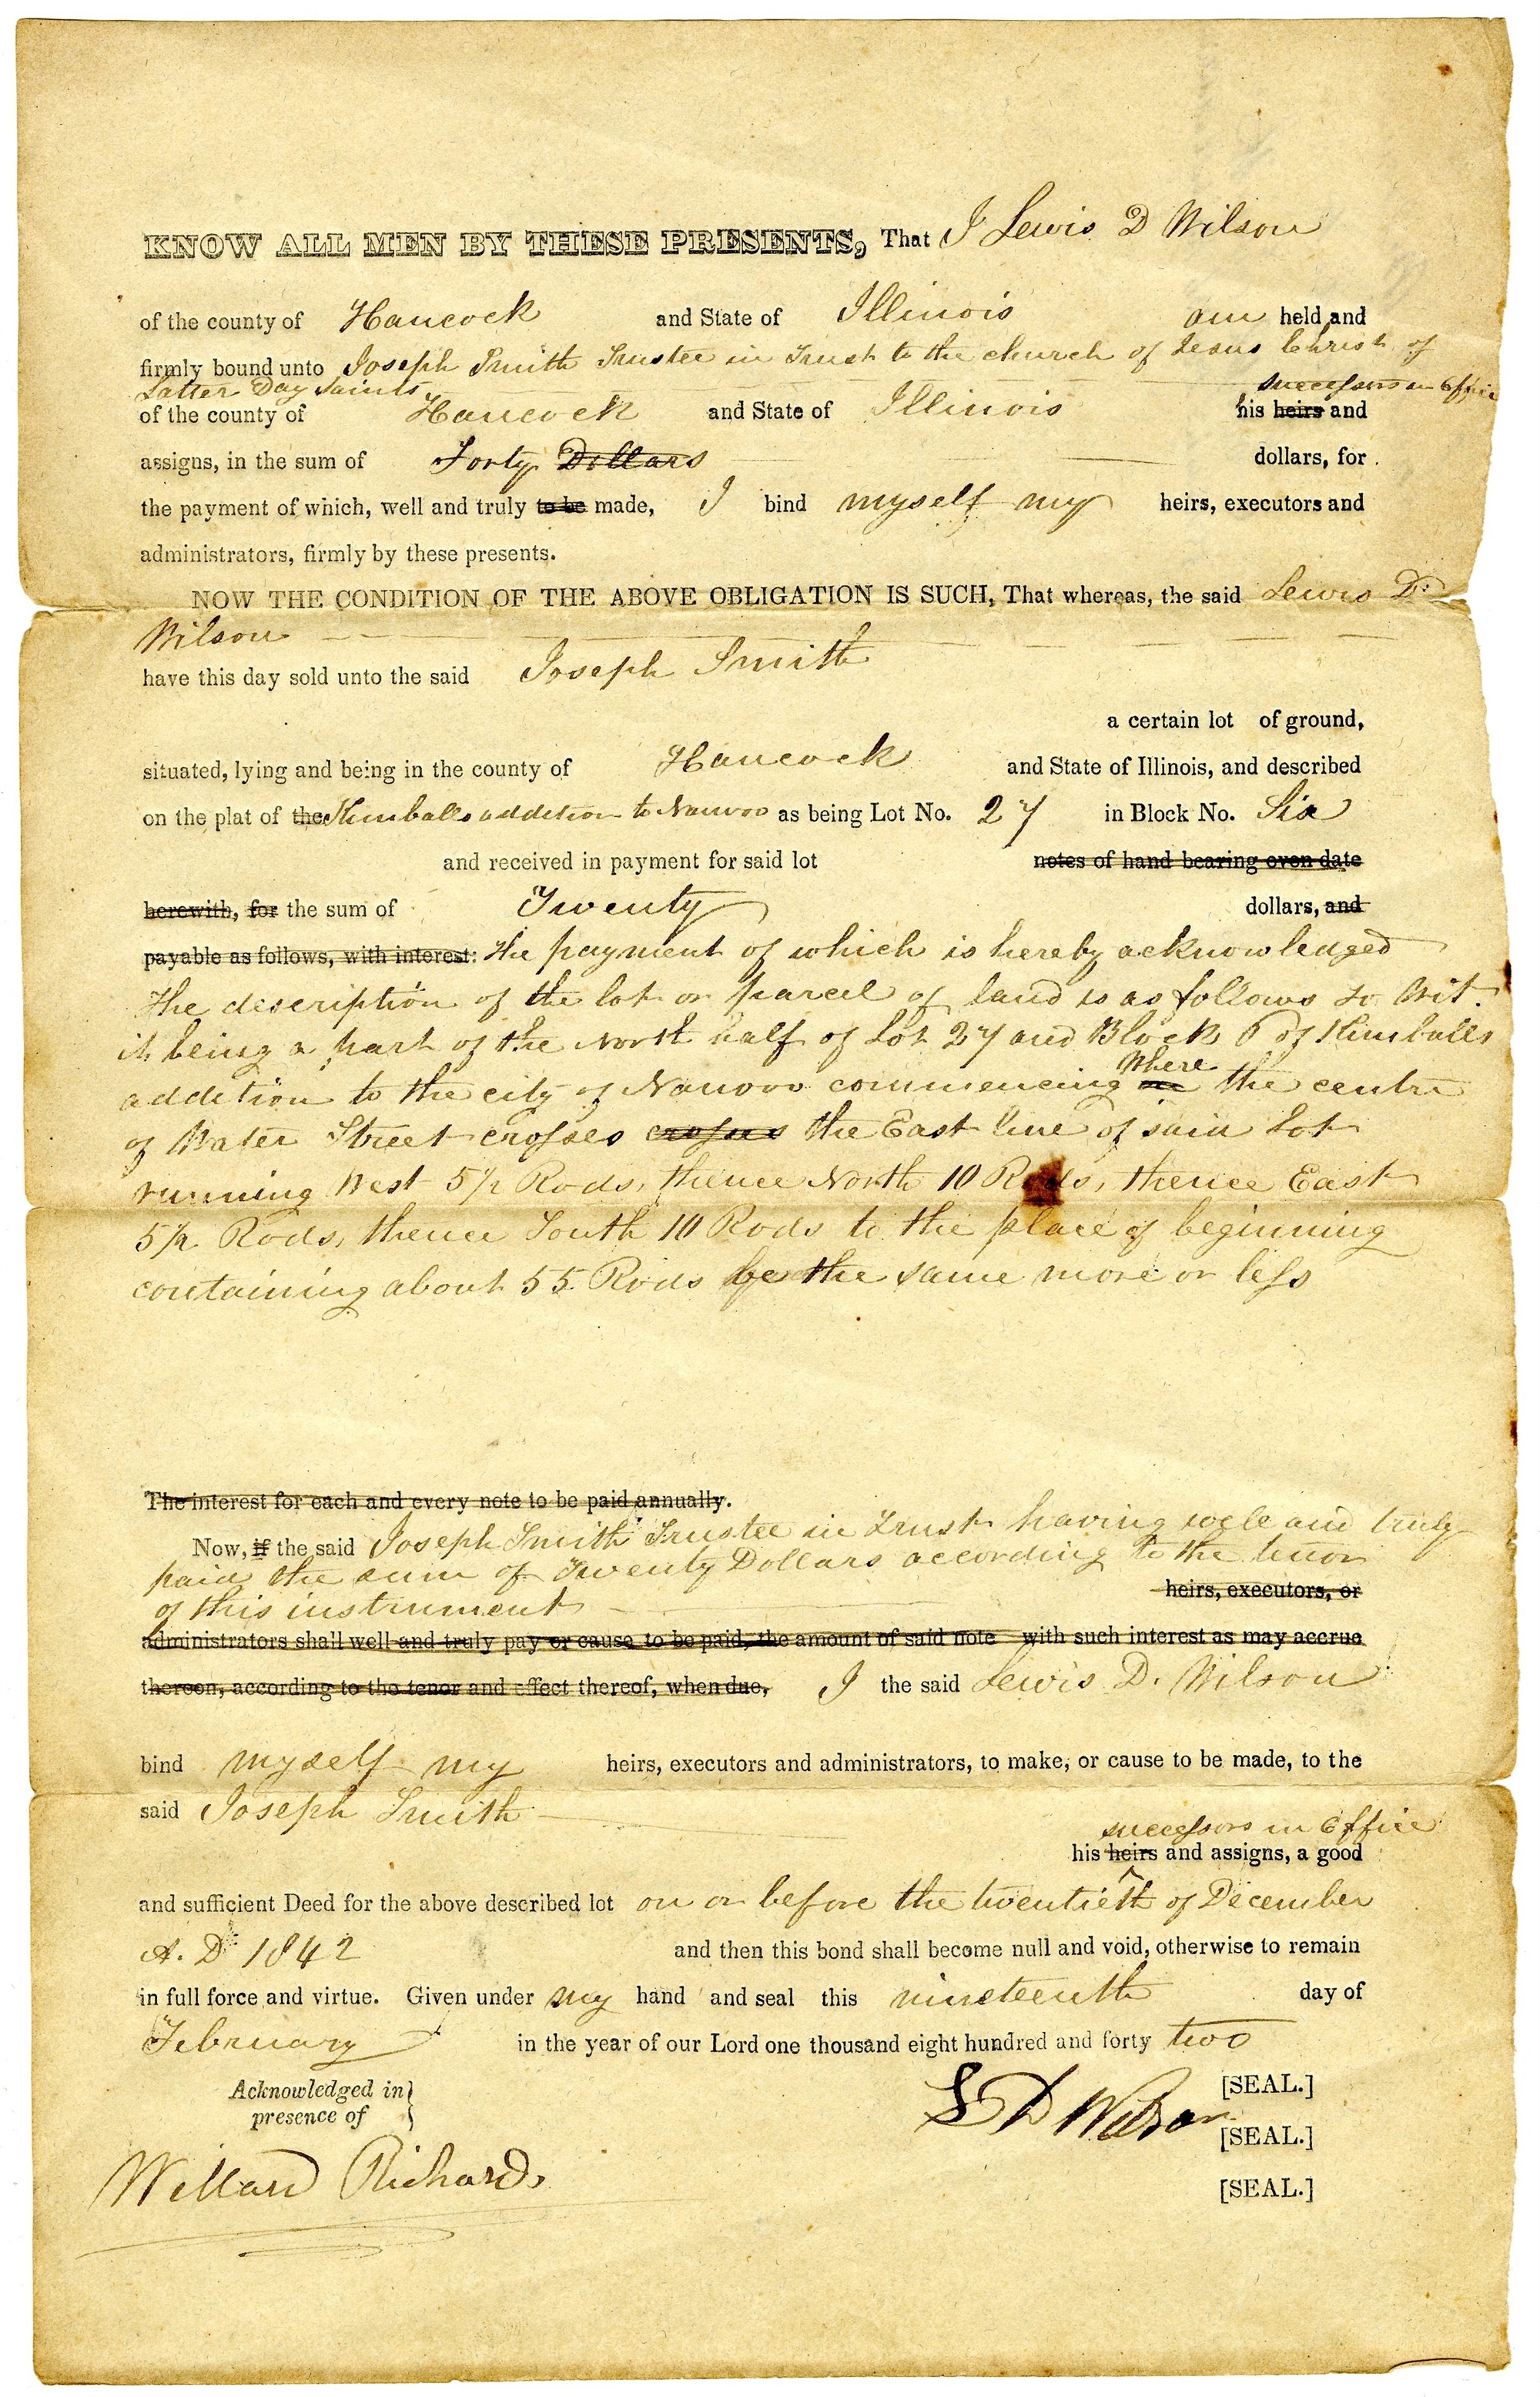 KNOW ALL MEN BY THESE PRESENTS, That I Lewis D Wilson
of the county of Hancock and State of Illinois am held and
firmly bound unto Joseph Smith Trustee in Trust to the church of Jesus Christ of
Latter Day Saints, successors in office
of the county of Hancock and State of Illinois his heirs and
assigns, in the sum of Forty Dollars dollars, for
the payment of which, well and truly to be made, I bind myself my heirs, executors and
administrators, firmly by these presents.
NOW THE CONDITION OF THE ABOVE OBLIGATION IS SUCH, That whereas, the said Lewis D.
Wilson
have this day sold unto the said Joseph Smith
a certain lot of ground,
situated, lying and being in the county of Hancock and State of Illinois, and described
on the plat of the Kimballs addition to Nauvoo as being Lot No. 27 in Block No. Six
and received in payment for said lot notes of hand bearing even date
herewith, for the sum of Twenty dollars, and
payable as follows, with interest: the payment of which is hereby acknowledged
The description of the lot or parcel of land is as follows to Wit.
it being a part of the North half of Lot 27 and Block 6 of Kimballs
where
addition to the city of Nauvoo commencing the centre
of Water Street crosses crosses the East line of said Lot
running West 5½ Rods, thence North 10 Rods, thence East
5½ Rods, thence South 10 Rods to the place of beginning
containing about 55 Rods be the same more or less
The interest for each and every note to be paid annually.
Now, if the said Joseph Smith Trustee in Trust having well and truly
paid the sum of Twenty Dollars according to the tenor
of this instrument heirs, executors, or
administrators shall well and truly pay or cause to be paid, the amount of said note with such interest as may accrue
thereon, according to the tenor and effect thereof, when due, I the said Lewis D. Wilson
bind myself my heirs, executors and administrators, to make, or cause to be made, to the
said Joseph Smith
successors in office
his heirs and assigns, a good
and sufficient Deed for the above described lot on or before the twentieth of December
A. D. 1842 and then this bond shall become null and void, otherwise to remain
in full force and virtue. Given under my hand and seal this nineteenth day of
February in the year of our Lord one thousand eight hundred and forty two
Acknowledged in
presence of
L D Wilson [SEAL.]
[SEAL.]
Willard Richards
[SEAL.]